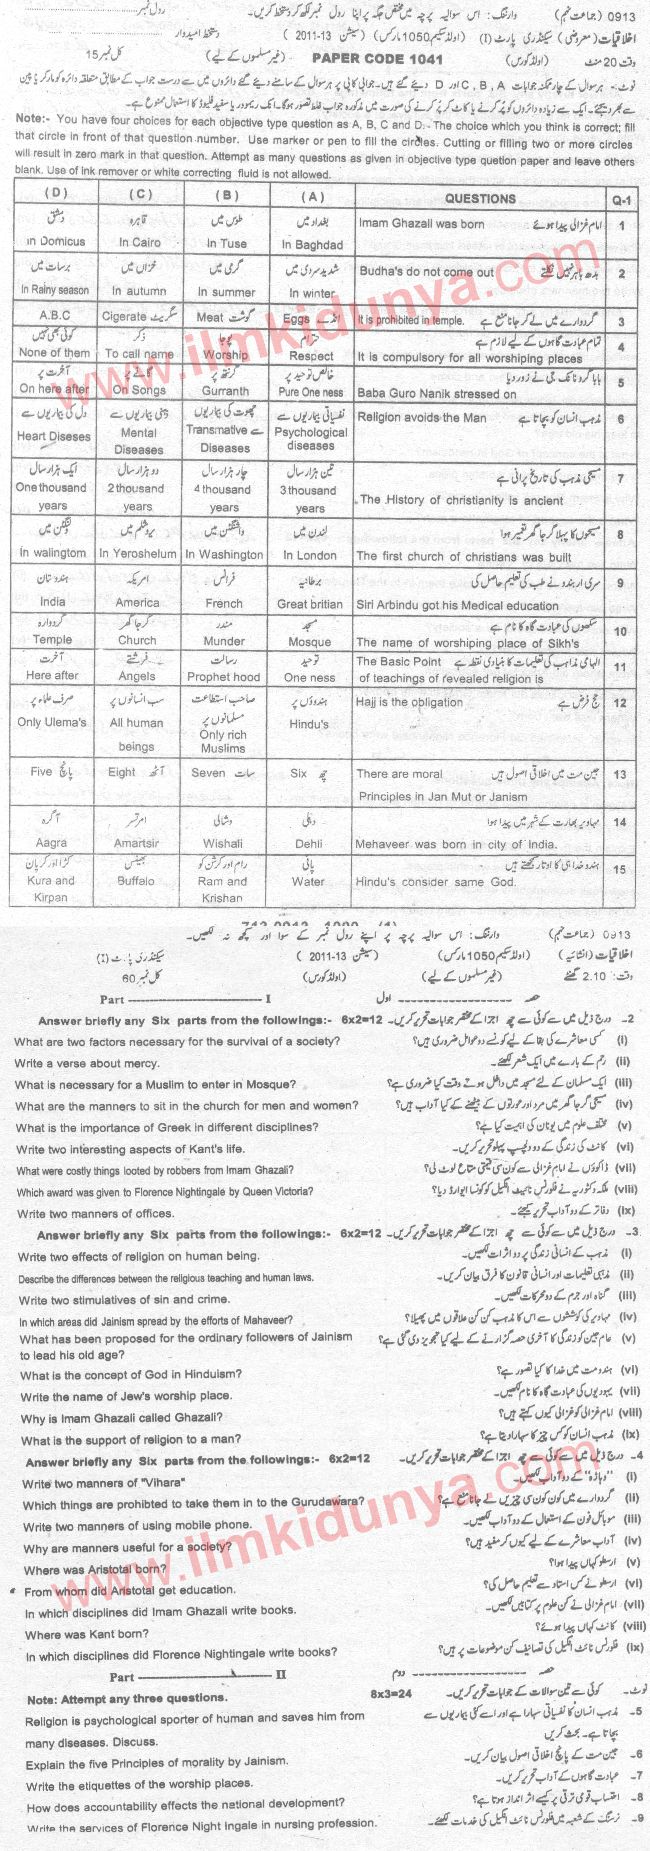 0913 (جماعت نہم) وارننگ: اس سوالیہ پرچہ میں مختص جگہ پر اپنا رول نمبر لکھ کر دستخط کریں۔ رول نمبر
اخلاقیات (معروضی) سیکنڈری پارٹ (I) (اولڈ سکیم 1050 مارکس) (سیشن 13-2011) دستخط امیدوار
وقت 20 منٹ (اولڈ کورس) PAPER CODE 1041 (غیر مسلموں کے لیے) کل نمبر 15
Note:- You have four choices for each objective type question as A, B, C and D. The choice which you think is correct; fill
that circle in front of that question number. Use marker or pen to fill the circles. Cutting or filling two or more circles
will result in zero mark in that question. Attempt as many questions as given in objective type quetion paper and leave others
blank. Use of ink remover or white correcting fluid is not allowed.
(D) (C) (B) (A) QUESTIONS Q-1
دمشق قاہرہ طوس میں بغداد میں امام غزالی پیدا ہوئے
In Domicus In Cairo In Tuse In Baghdad Imam Ghazali was born 1
برسات میں خزاں میں گرمی میں شدید سردی میں بدھ باہر نہیں نکلتے
In Rainy season In autumn In summer In winter Budha's do not come out 2
A.B.C Cigerate سگریٹ Meat گوشت Eggs انڈے It is prohibited in temple. گردوارے میں لے کر جانا منع ہے 3
کوئی بھی نہیں ذکر پوجا احترام تمام عبادت گاہوں کے لیے لازم ہے
None of them To call name Worship Respect It is compulsory for all worshiping places 4
آخرت پر گانے پر گرنتھ پر خالص توحید پر بابا گرو نانک جی نے زور دیا
On here after On Songs Gurranth Pure One ness Baba Guro Nanik stressed on 5
دل کی بیماریوں سے ذہنی بیماریوں سے چھوت کی بیماریوں سے نفسیاتی بیماریوں سے مذہب انسان کو بچاتا ہے
Heart Diseses Mental Diseases Transmative Diseases Psychological diseases Religion avoids the Man 6
ایک ہزار سال دو ہزار سال چار ہزار سال تین ہزار سال مسیحی مذہب کی تاریخ پرانی ہے
One thousand years 2 thousand years 4 thousand years 3 thousand years The History of christianity is ancient 7
ولنگٹن میں یروشلم میں واشنگٹن میں لندن میں مسیحوں کا پہلا گرجا گھر تعمیر ہوا
In walingtom In Yeroshelum In Washington In London The first church of christians was built 8
ہندوستان امریکہ فرانس برطانیہ سری اربندو نے طب کی تعلیم حاصل کی
India America French Great britian Siri Arbindu got his Medical education 9
گردوارہ گرجا گھر مندر مسجد سکھوں کی عبادت گاہ کا نام ہے
Temple Church Munder Mosque The name of worshiping place of Sikh's 10
آخرت فرشتے رسالت توحید The Basic Point الہامی مذاہب کی تعلیمات کا بنیادی نقطہ ہے
Here after Angels Prophet hood One ness of teachings of revealed religion is 11
صرف علماء پر سب انسانوں پر صاحب استطاعت مسلمانوں پر ہندوؤں پر حج فرض ہے
Only Ulema's All human beings Only rich Muslims Hindu's Hajj is the obligation 12
Five پانچ Eight آٹھ Seven سات Six چھ There are moral جین مت میں اخلاقی اصول ہیں
Principles in Jan Mut or Janism 13
آگرہ امرتسر وشالی دہلی مہاویر بھارت کے شہر میں پیدا ہوا
Aagra Amartsir Wishali Dehli Mehaveer was born in city of India. 14
کڑا اور کرپان بھینس رام اور کرشن کو پانی ہندو خدا ہی کا اوتار سمجھتے ہیں
Kura and Kirpan Buffalo Ram and Krishan Water Hindu's consider same God. 15
0913 (جماعت نہم) وارننگ: اس سوالیہ پرچہ پر اپنے رول نمبر کے سوا اور کچھ نہ لکھیں۔
اخلاقیات (انشائیہ) (اولڈ سکیم 1050 مارکس) (سیشن 13-2011) سیکنڈری پارٹ (I)
وقت: 2.10 گھنٹے (غیر مسلموں کے لیے) (اولڈ کورس) کل نمبر 60
Part I حصہ اول
Answer briefly any Six parts from the followings:- 6x2=12 2۔ درج ذیل میں سے کوئی سے چھ اجزا کے مختصر جوابات تحریر کریں۔
What are two factors necessary for the survival of a society? (i) کسی معاشرے کی بقا کے لیے کونسے دو عوامل ضروری ہیں؟
Write a verse about mercy. (ii) رحم کے بارے میں ایک شعر لکھئے۔
What is necessary for a Muslim to enter in Mosque? (iii) ایک مسلمان کے لئے مسجد میں داخل ہوتے وقت کیا ضروری ہے؟
What are the manners to sit in the church for men and women? (iv) مسیحی گرجا گھر میں مرد اور عورتوں کے بیٹھنے کے کیا آداب ہیں؟
What is the importance of Greek in different disciplines? (v) مختلف علوم میں یونان کی اہمیت کیا ہے؟
Write two interesting aspects of Kant's life. (vi) کانٹ کی زندگی کے دو دلچسپ پہلو تحریر کریں۔
What were costly things looted by robbers from Imam Ghazali? (vii) ڈاکوؤں نے امام غزالی سے کون سی قیمتی متاع لوٹ لی؟
Which award was given to Florence Nightingale by Queen Victoria? (viii) ملکہ وکٹوریہ نے فلورنس نائٹ انگیل کو کونسا ایوارڈ دیا؟
Write two manners of offices. (ix) دفاتر کے دو آداب تحریر کیجئے۔
Answer briefly any Six parts from the followings:- 6x2=12 3۔ درج ذیل میں سے کوئی سے چھ اجزا کے مختصر جوابات تحریر کریں۔
Write two effects of religion on human being. (i) مذہب کے انسانی زندگی پر دو اثرات لکھیں۔
Describe the differences between the religious teaching and human laws. (ii) مذہبی تعلیمات اور انسانی قانون کا فرق بیان کریں۔
Write two stimulatives of sin and crime. (iii) گناہ اور جرم کے دو محرکات لکھیں۔
In which areas did Jainism spread by the efforts of Mahaveer? (iv) مہاویر کی کوششوں سے اس کا مذہب کن کن علاقوں میں پھیلا؟
What has been proposed for the ordinary followers of Jainism (v) عام جین کو زندگی کا آخری حصہ گزارنے کے لیے کیا تجویز دی گئی ہے؟
to lead his old age?
What is the concept of God in Hinduism? (vi) ہندو مت میں خدا کا کیا تصور ہے؟
Write the name of Jew's worship place. (vii) یہودیوں کی عبادت گاہ کا نام لکھیں۔
Why is Imam Ghazali called Ghazali? (viii) امام غزالی کو غزالی کیوں کہتے ہیں؟
What is the support of religion to a man? (ix) مذہب انسان کو کس چیز کا سہارا دیتا ہے؟
Answer briefly any Six parts from the followings:- 6x2=12 4۔ درج ذیل میں سے کوئی سے چھ اجزا کے مختصر جوابات تحریر کریں۔
Write two manners of "Vihara" (i) "وہارہ" کے دو آداب لکھیں۔
Which things are prohibted to take them in to the Gurudawara? (ii) گردوارے میں کون کون سی چیزیں لے جانا منع ہے؟
Write two manners of using mobile phone. (iii) موبائل فون کے استعمال کے دو آداب لکھیں۔
Why are manners useful for a society? (iv) آداب معاشرے کے لیے کیوں کر مفید ہیں؟
Where was Aristotal born? (v) ارسطو کہاں پیدا ہوا؟
From whom did Aristotal get education. (vi) ارسطو نے کس استاد سے تعلیم حاصل کی؟
In which disciplines did Imam Ghazali write books. (vii) امام غزالی نے کن علوم پر کتابیں لکھیں۔
Where was Kant born? (viii) کانٹ کہاں پیدا ہوئے؟
In which disciplines did Florence Nightingale write books? (ix) فلورنس نائٹ انگیل کی تصانیف کن موضوعات پر ہیں؟
Part II حصہ دوم
Note: Attempt any three questions. 8x3=24 نوٹ۔ کوئی سے تین سوالات کے جوابات تحریر کریں۔
Religion is psychological sporter of human and saves him from 5۔ مذہب انسان کا نفسیاتی سہارا ہے اور اسے کئی بیماریوں سے
many diseases. Discuss. بچاتا ہے۔ بحث کریں
Explain the five Principles of morality by Jainism. 6۔ جین مت کے پانچ اخلاقی اصول بیان کریں۔
Write the etiquettes of the worship places. 7۔ عبادت گاہوں کے آداب تحریر کریں۔
How does accountability effects the national development? 8۔ احتساب قومی ترقی پر کیسے اثر انداز ہوتا ہے؟
Write the services of Florence Night Ingale in nursing profession. 9۔ نرسنگ کے شعبہ میں فلورنس نائٹ انگیل کی خدمات لکھئے۔
www.ilmkidunya.com
www.ilmkidunya.com